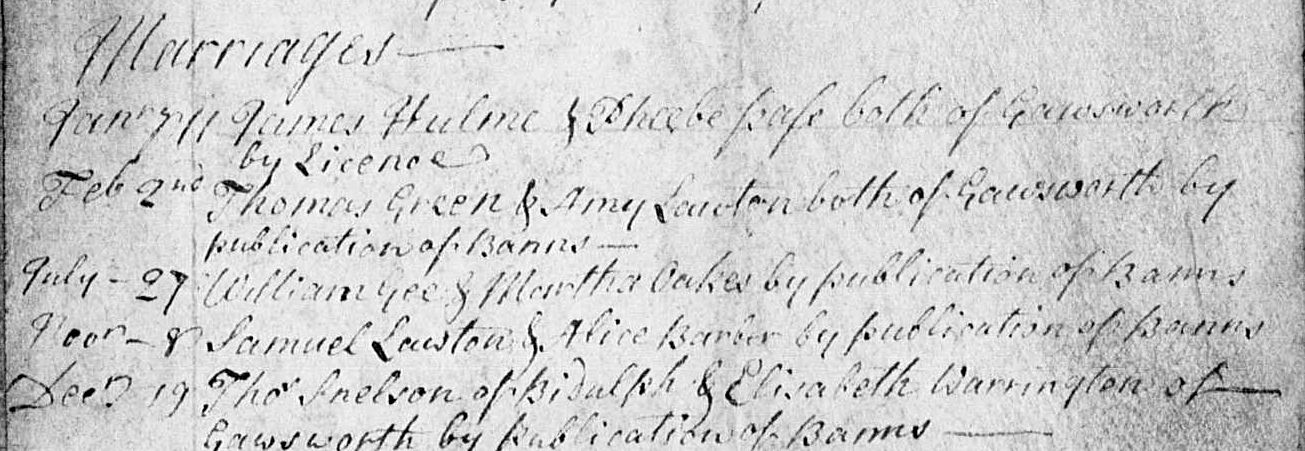 Marriages
Janry 11 James Hulme & Phœbe pase both of Gawsworth
by Licence
Feb 2nd Thomas Green & Amy Lawton both of Gawsworth by
publication of Banns
July - 27 William Gee & Martha Oakes by publication of Banns
Novr - 8 Samuel Lawton & Alice Barber by publication of Banns
Decr 19 Thos Snelson of Bidulph & Elisabeth Warrington of
Gawsworth by publication of Banns